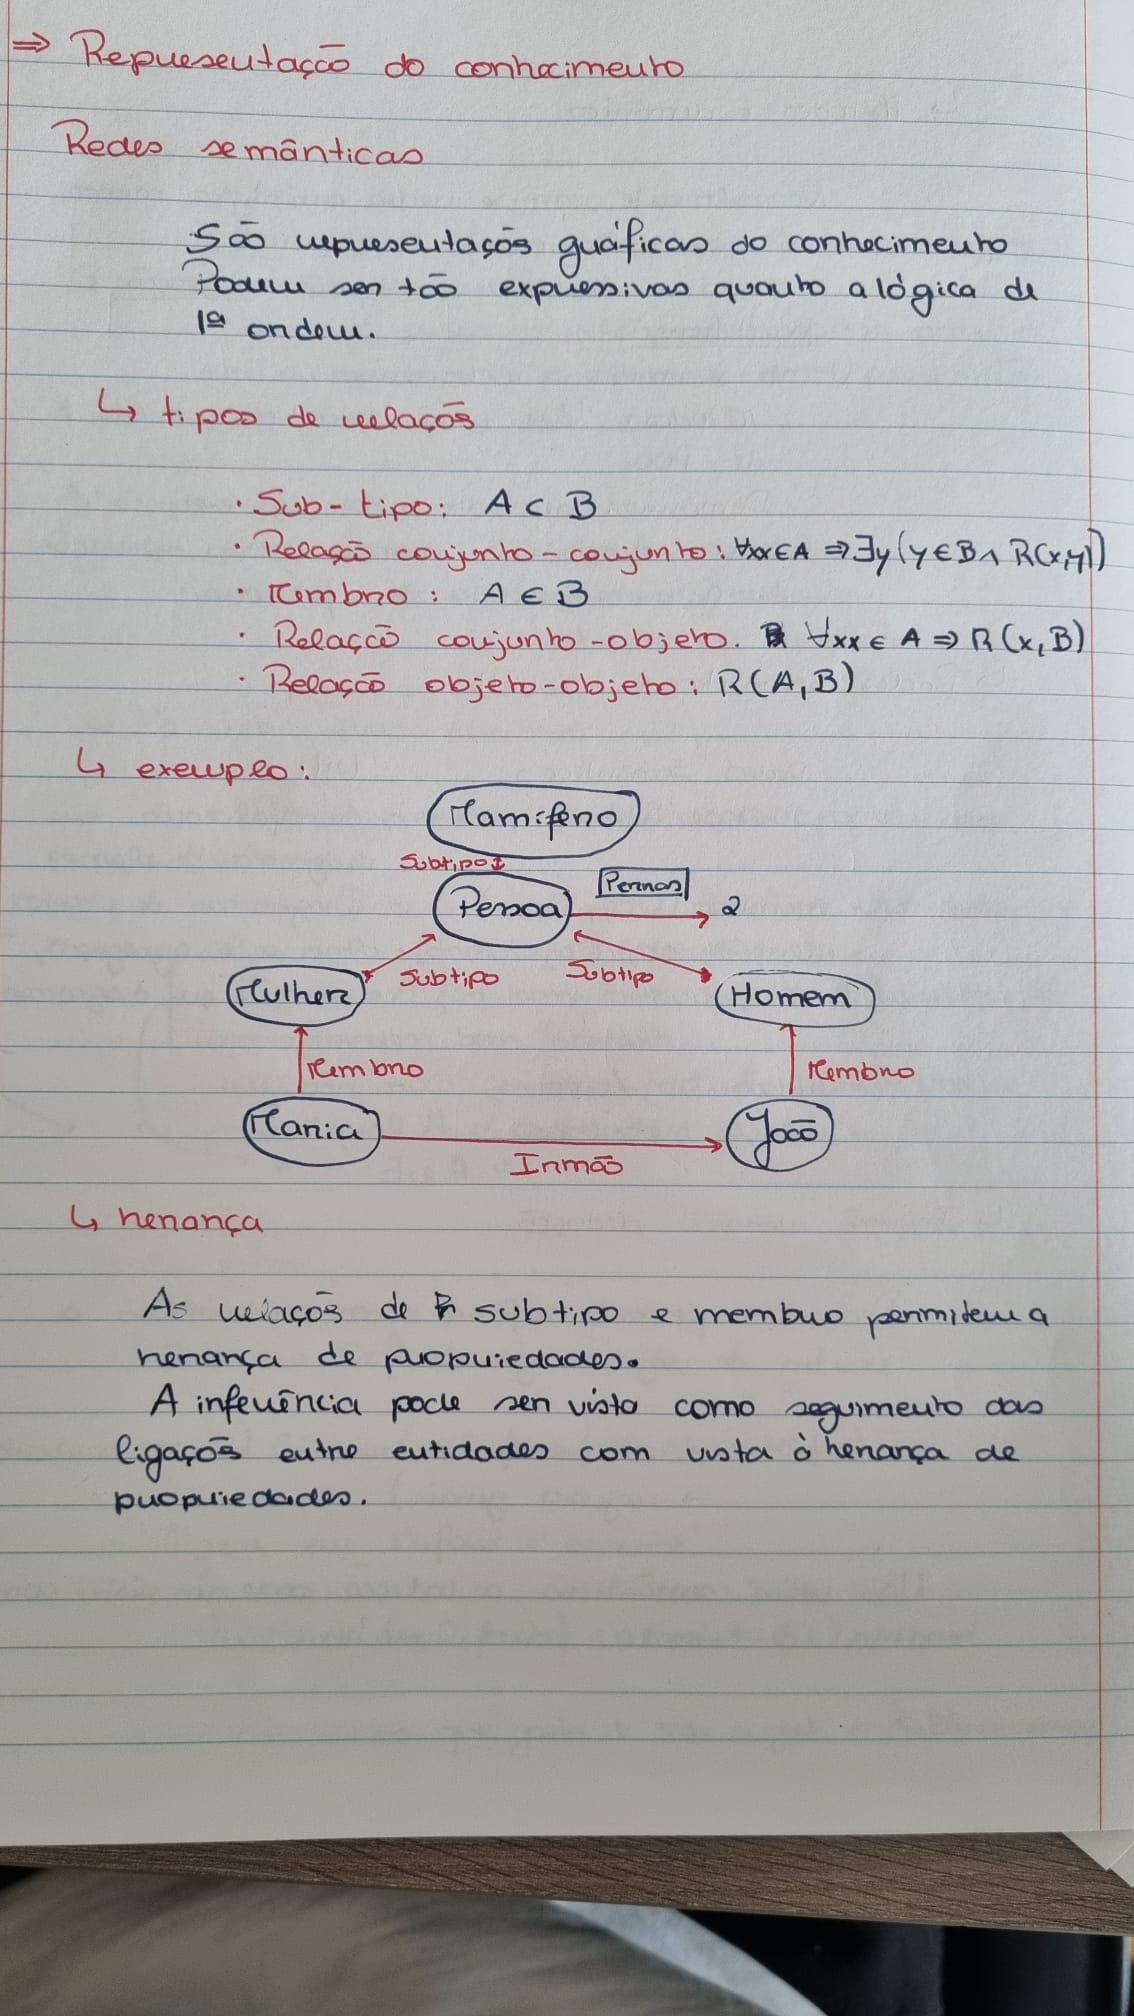 ⇒ Representação do conhecimento
Redes semânticas
São representações gráficas do conhecimento
Podem ser tão expressivas quanto a lógica de
1ª ordem.
↳ tipos de relações
· Sub-tipo: A ⊂ B
· Relação conjunto-conjunto: ∀x x∈A ⇒ ∃y (y∈B ∧ R(x,y))
· Membro: A ∈ B
· Relação conjunto-objeto. ∀x x∈A ⇒ R(x,B)
· Relação objeto-objeto: R(A,B)
↳ exemplo:
Mamífero
Subtipo
Pernas
Pessoa
2
Subtipo
Subtipo
Mulher
Homem
Membro
Membro
Maria
João
Irmão
↳ herança
As relações de subtipo e membro permitem a
herança de propriedades.
A inferência pode ser vista como seguimento das
ligações entre entidades com vista à herança de
propriedades.